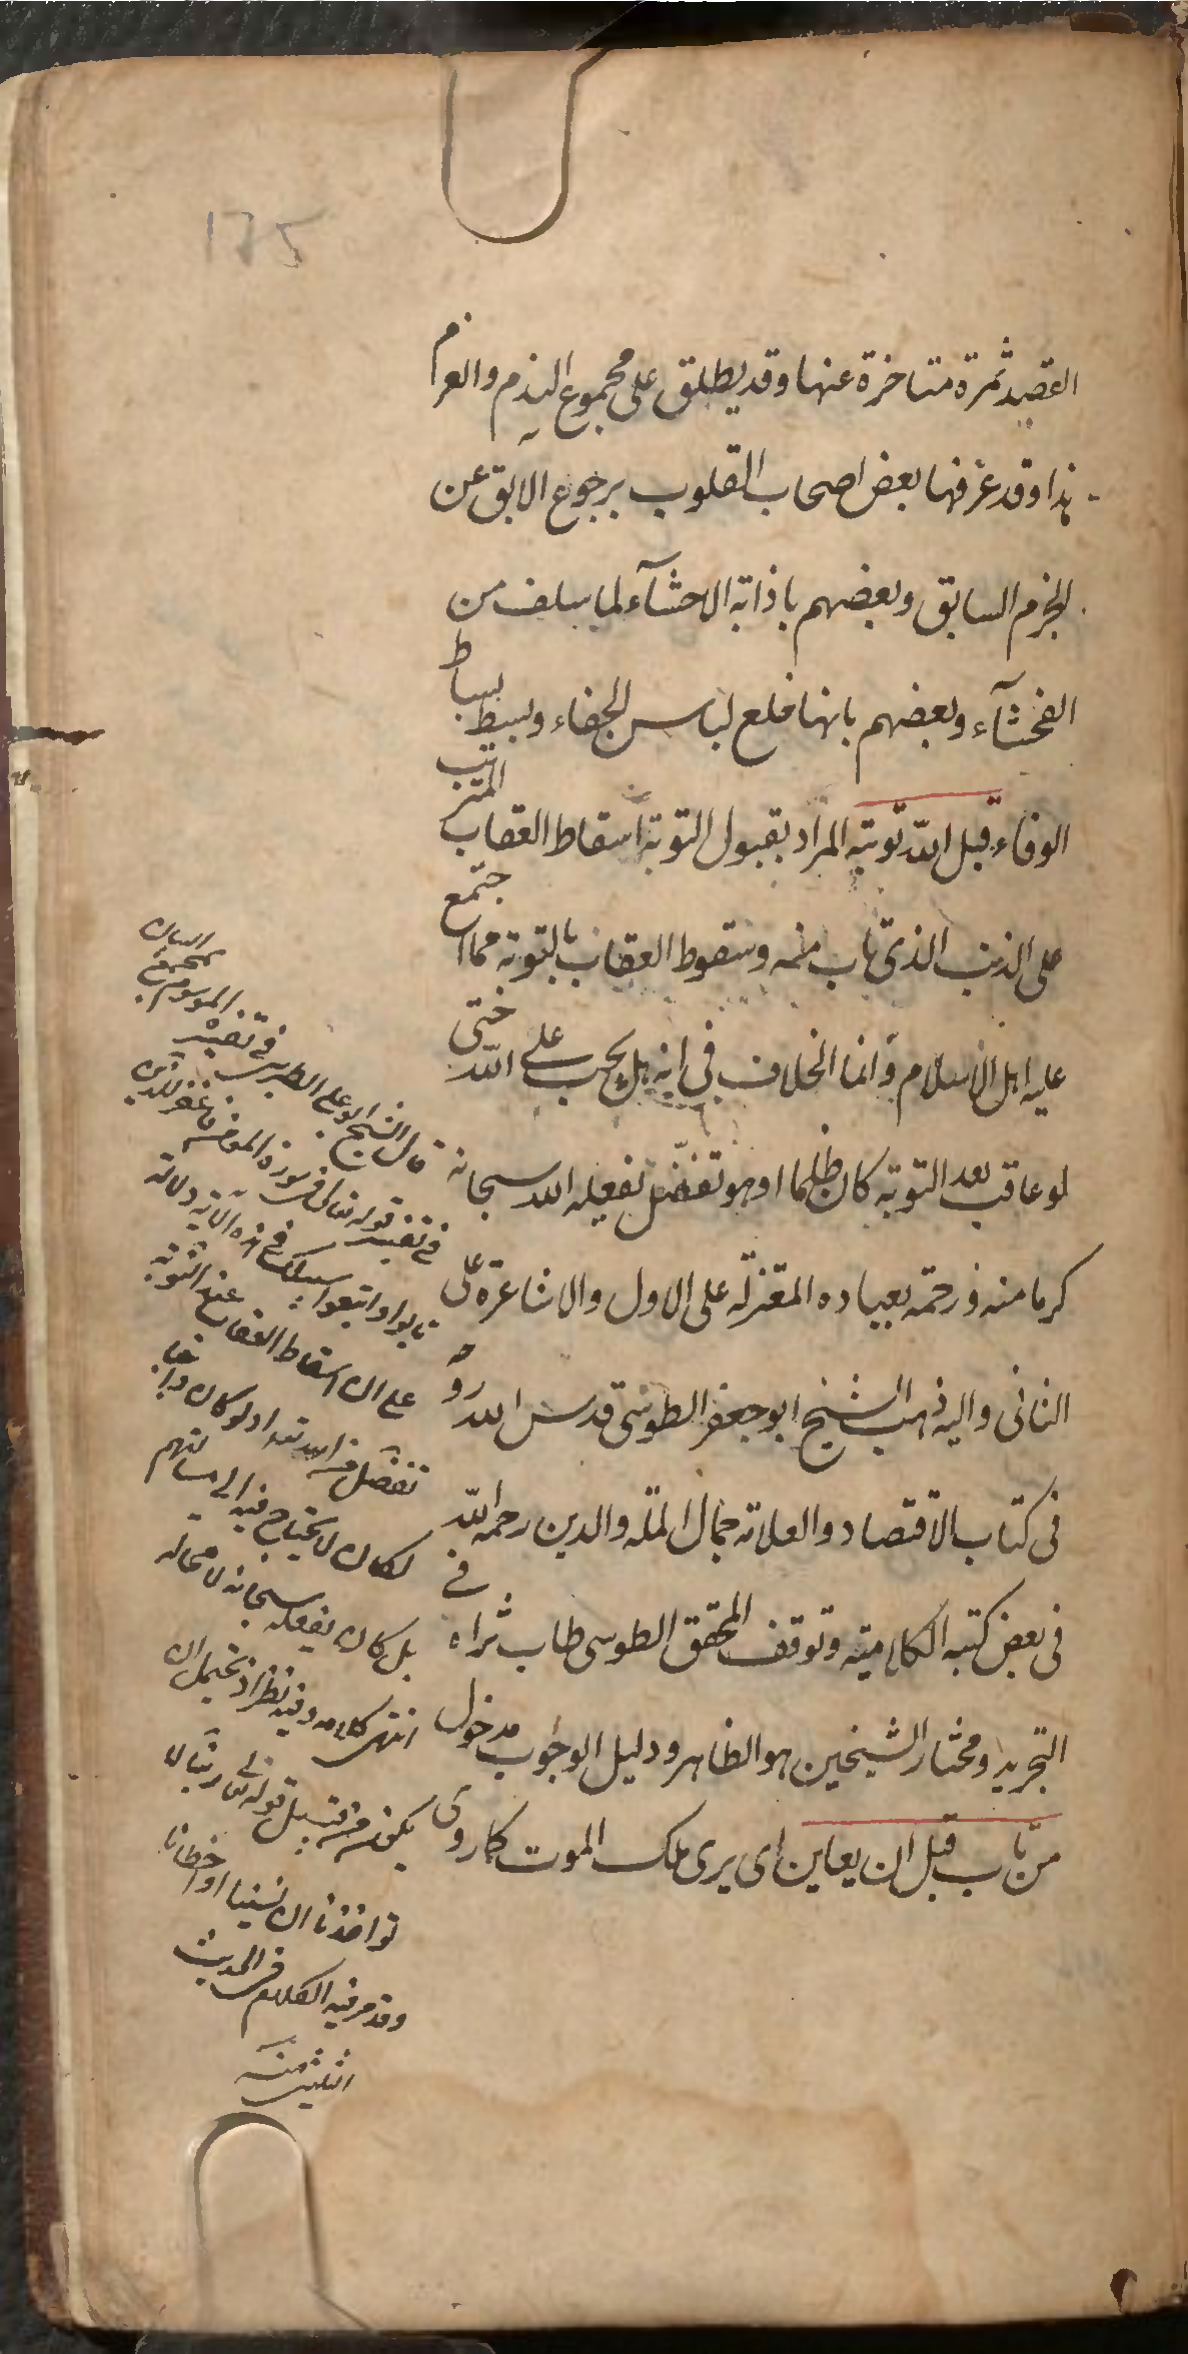 175
القصد ثمرة متاخرة عنها وقد يطلق على مجموع الندم والعزم
هذا وقد عرفها بعض اصحاب القلوب برجوع الابق عن
الجرم السابق وبعضهم باذابة الاحشآء لما سلف من
الفحشآء وبعضهم بانها خلع لباس الجفاء وبسط بساط
الوفاء قبل الله توبته المراد بقبول التوبة اسقاط العقاب المترتب
على الذنب الذى تاب منه وسقوط العقاب بالتوبة مما اجتمع
عليه اهل الاسلام وانما الخلاف فى انه هل يجب على الله حتى
لو عاقب بعد التوبة كان ظلما او هو تفضّل تفعله الله سبحانه
كرما منه ورحمة بعباده المعتزلة على الاول والاشاعرة على
الثانى واليه ذهب الشيخ ابو جعفر الطوسى قدس الله روحه
فى كتاب الاقتصاد والعلامة جمال الملة والدين رحمه الله
فى بعض كتبه الكلامية وتوقف المحقق الطوسى طاب ثراه فى
التجريد ومختار الشيخين هو الظاهر ودليل الوجوب مدخول
من تاب قبل ان يعاين اى يرى ملك الموت كما روى
قال الشيخ ابو على الطبرسى فى تفسيره الموسوم بمجمع البيان
فى تفسير قوله تعالى فى سورة المؤمن فاغفر للذين
تابوا واتبعوا سبيلك فى هذه الآية دلالة
على ان اسقاط العقاب عند التوبة
تفضّل من الله تعه اذ لو كان واجبا
لكان لا يحتاج فيه الى مسالتهم
بل كان يفعله سبحانه لا محالة
انتهى كلامه وفيه نظر اذ يحتمل ان
يكون من قبيل قوله تعالى ربنا لا
تواخذنا ان نسينا او اخطانا
وقد مر فيه الكلام فى الحديث
الثلثين منه